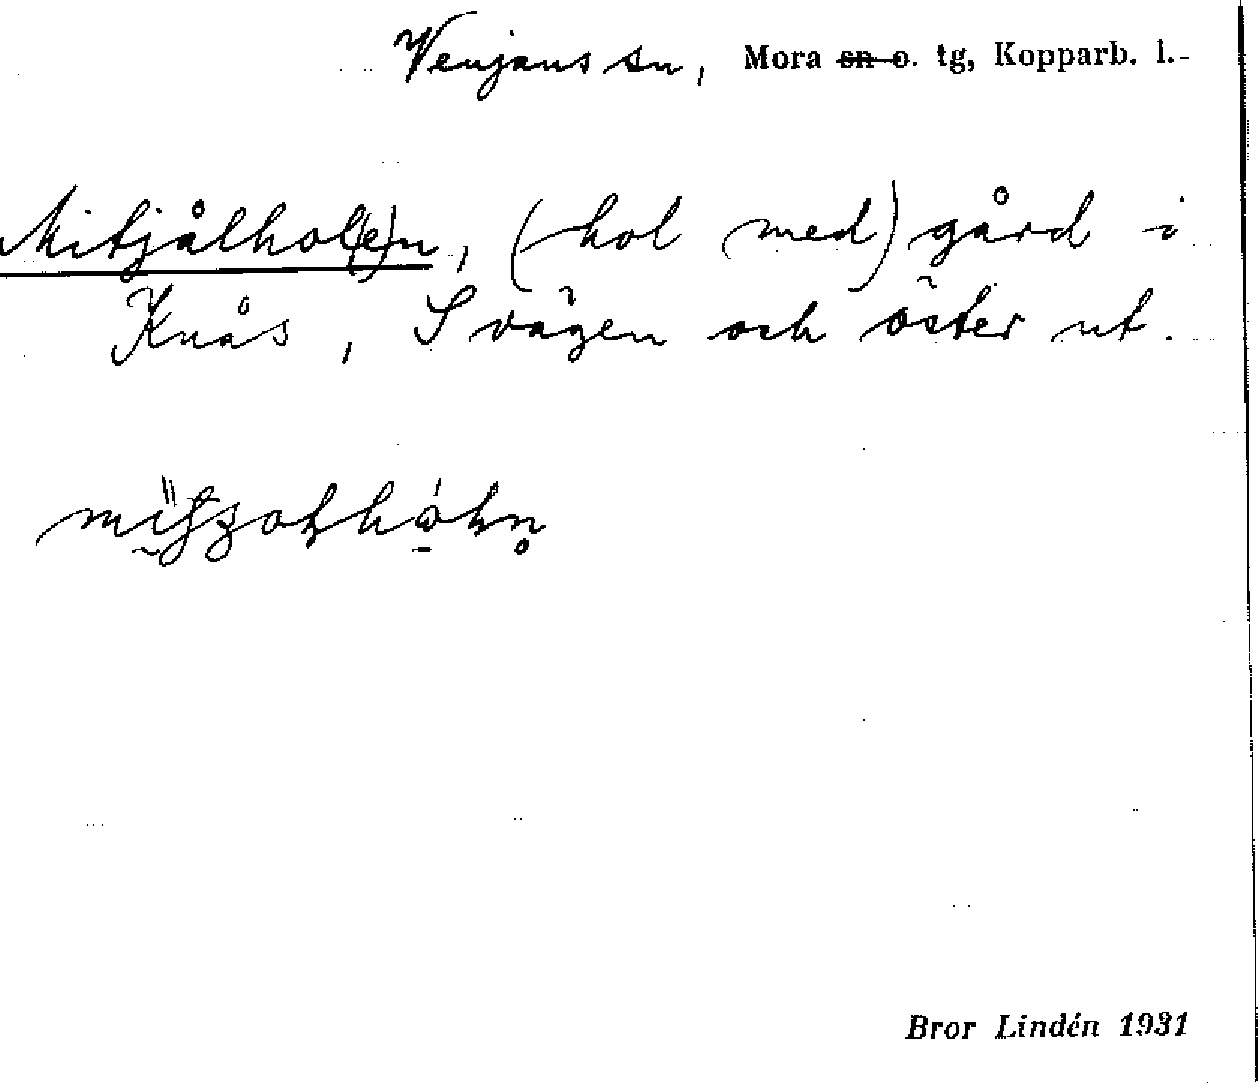 Venjans sn, Mora sn o. tg, Kopparb. l.
Mitjålhol(e)n, (hol med) gård i
Knås, S vägen och öster ut.
Bror Lindén 1931